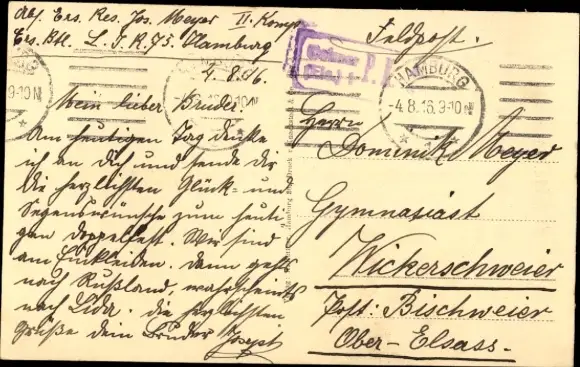 Abs. Ers. Res. Jos. Meyer II. Komp.
Ers. Btl. L. I. R. 75. Hamburg
4. 8. 16.
Mein lieber Bruder!
Am heutigen Tag denke
ich an dich und sende dir
die herzlichsten Glück- und
Segenswünsche zum heuti-
gen Doppelfest. Wir sind
am Einkleiden. Dann gehts
nach Rußland, wahrscheinl.
nach Lida. die herzlichsten
Grüße dein Bruder Joseph
Feldpost.
HAMBURG
-4.8.16.9-10N
Herrn
Dominik Meyer
Gymnasiast
Wickerschweier
Post: Bischweier
Ober-Elsass.